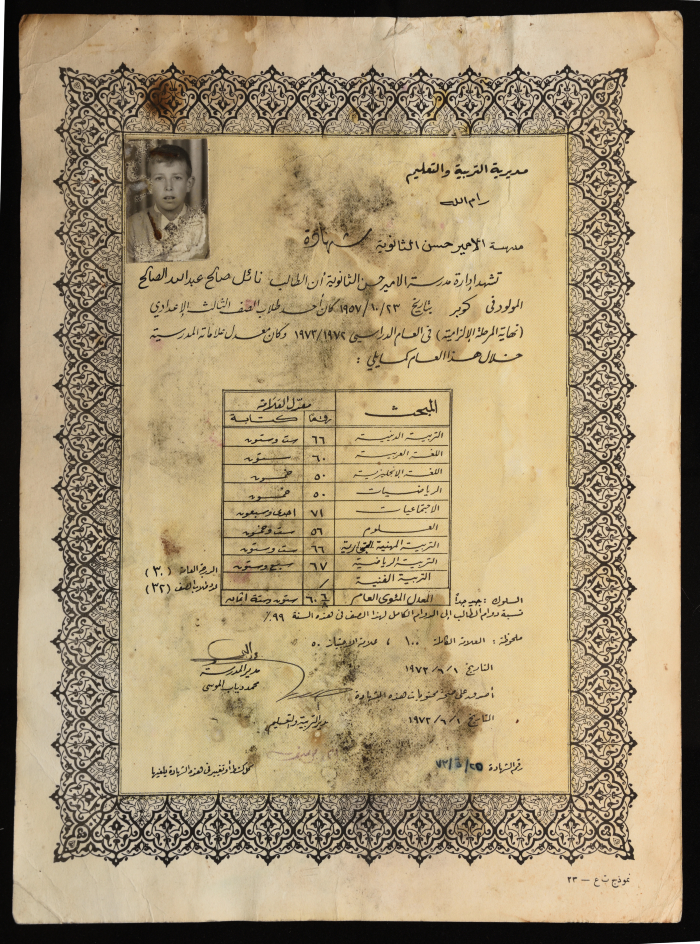 مديرية التربية والتعليم
رام الله
مدرسة الامير حسن الثانوية
شهادة
تشهد إدارة مدرسة الامير حسن الثانوية أن الطالب نائل صالح عبدالله الصالح
المولود في كوبر بتاريخ ٢٣/١٠/١٩٥٧ كان أحد طلاب الصف الثالث الإعدادي
(نهاية المرحلة الإلزامية) في العام الدراسي ١٩٧٢/١٩٧٣ وكان معدل علاماته المدرسية
خلال هذا العام كما يلي :
المبحث معدل العلامة
رقمًا كتابة
التربية الدينية ٦٦ ست وستون
اللغة العربية ٦٠ ستون
اللغة الإنجليزية ٥٠ خمسون
الرياضيات ٥٠ خمسون
الاجتماعيات ٧١ احدى وسبعون
العلوم ٥٦ ست وخمسون
التربية المهنية التجارية ٦٦ ست وستون
التربية الرياضية ٦٧ سبع وستون
التربية الفنية /
المعدل المئوي العام ستون وستة
الدرجة العامة (٣٠)
عدد طلاب الصف (٣٢)
السلوك : جيد جداً
نسبة دوام الطالب الى الدوام الكامل لهذا الصف في هذه السنة ٩٩٪
ملحوظة : العلامة الكاملة ١٠٠ ، علامة الاجتياز ٥٠
التاريخ ١/٦/١٩٧٣
مدير المدرسة
محمد دياب الموسى
أصدق على صحة محتويات هذه الشهادة
التاريخ ١/٦/١٩٧٣
مدير التربية والتعليم
رقم الشهادة
كل كشط أو تغيير في هذه الشهادة يلغيها
نموذج ت ع — ٢٣